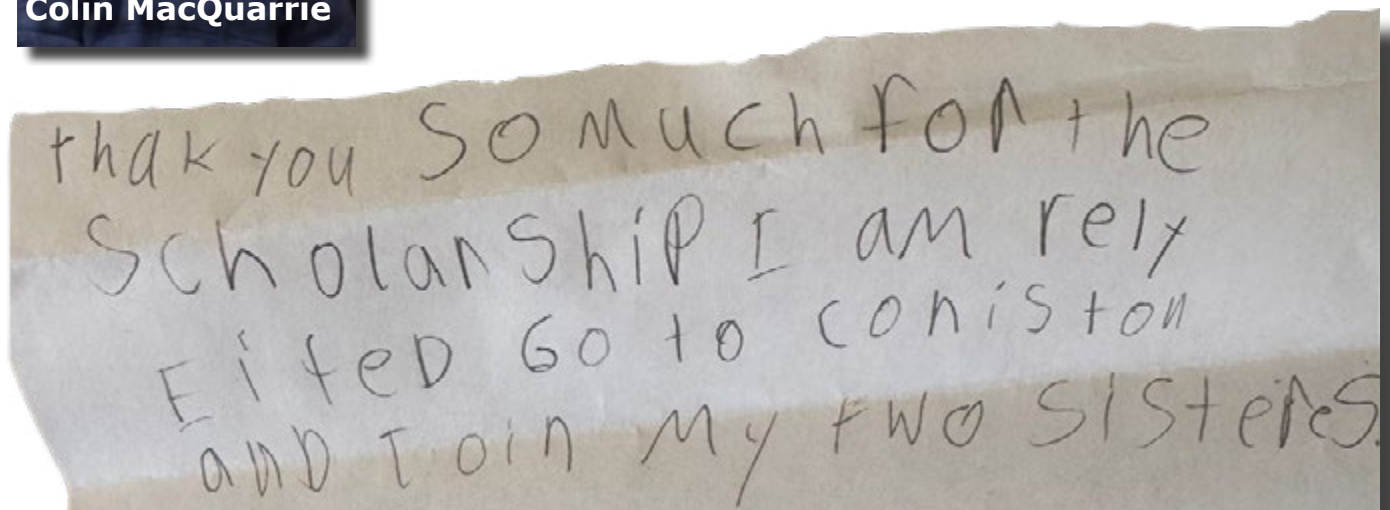 Colin MacQuarrie
thak you So Much for the
ScholarShip I am rely
EiteD Go to coniston
anD Join My two Sisteres.